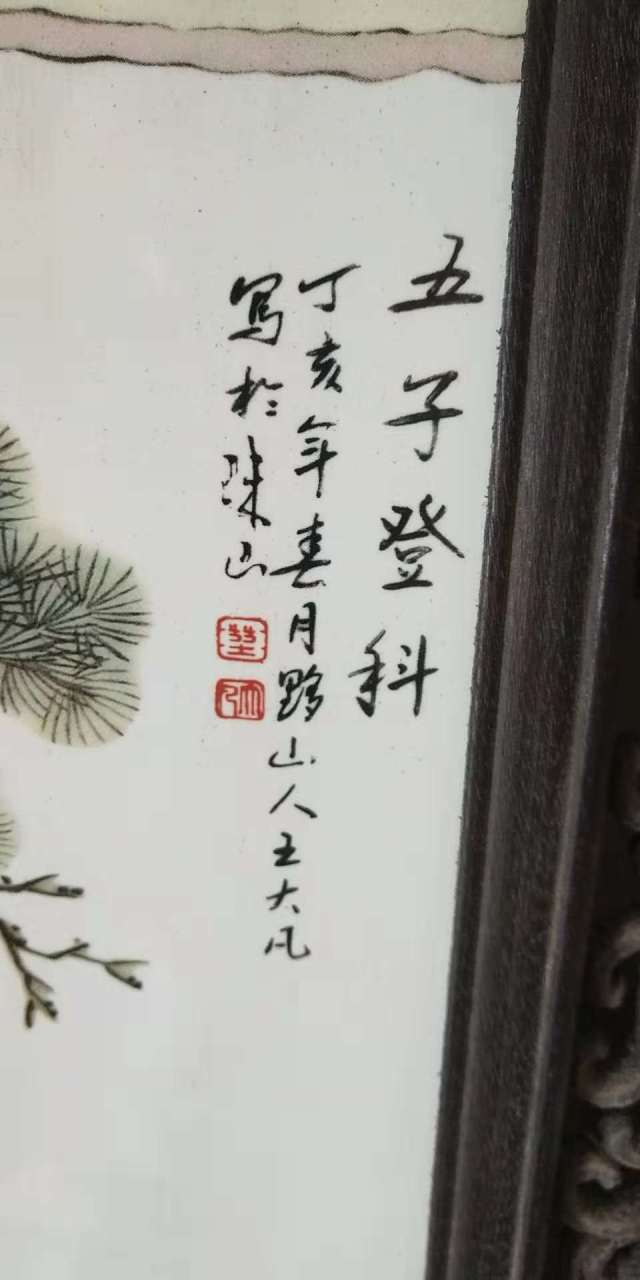 五子登科
丁亥年春月黟山人王大凡
写於珠山